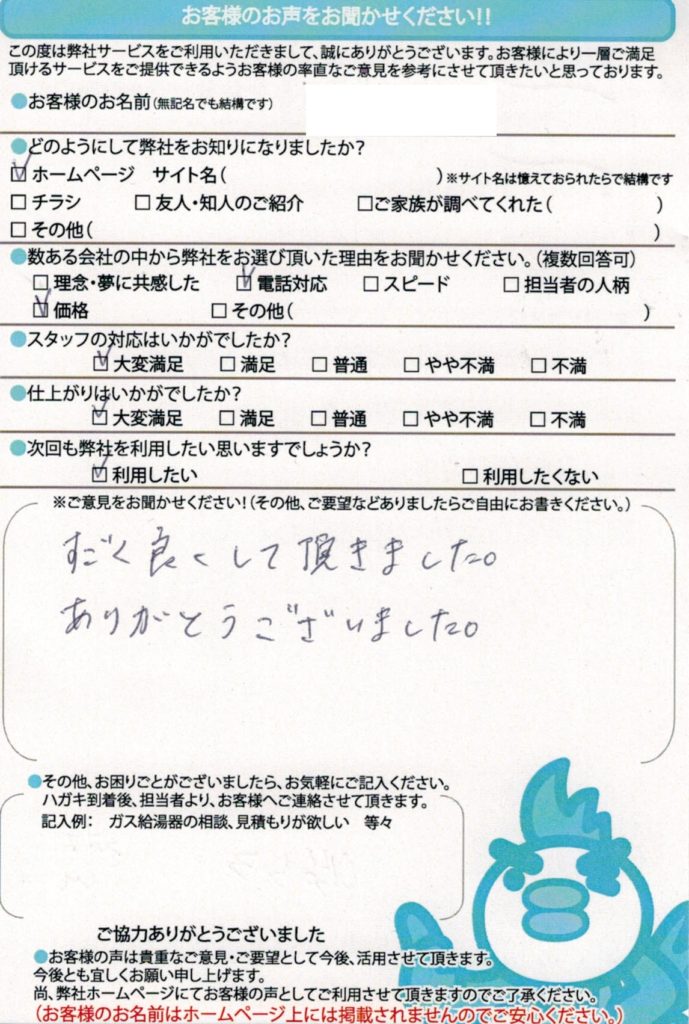 お客様のお声をお聞かせください!!
この度は弊社サービスをご利用いただきまして、誠にありがとうございます。お客様により一層ご満足
頂けるサービスをご提供できるようお客様の率直なご意見を参考にさせて頂きたいと思っております。
●お客様のお名前(無記名でも結構です)
●どのようにして弊社をお知りになりましたか?
☑ホームページ サイト名( )※サイト名は憶えておられたらで結構です
□チラシ □友人・知人のご紹介 □ご家族が調べてくれた( )
□その他( )
●数ある会社の中から弊社をお選び頂いた理由をお聞かせください。(複数回答可)
□理念・夢に共感した ☑電話対応 □スピード □担当者の人柄
☑価格 □その他( )
●スタッフの対応はいかがでしたか?
☑大変満足 □満足 □普通 □やや不満 □不満
●仕上がりはいかがでしたか?
☑大変満足 □満足 □普通 □やや不満 □不満
●次回も弊社を利用したい思いますでしょうか?
☑利用したい □利用したくない
※ご意見をお聞かせください!(その他、ご要望などありましたらご自由にお書きください。)
すごく良くして頂きました。
ありがとうございました。
●その他、お困りごとがございましたら、お気軽にご記入ください。
ハガキ到着後、担当者より、お客様へご連絡させて頂きます。
記入例: ガス給湯器の相談、見積もりが欲しい 等々
ご協力ありがとうございました
●お客様の声は貴重なご意見・ご要望として今後、活用させて頂きます。
今後とも宜しくお願い申し上げます。
尚、弊社ホームページにてお客様の声としてご利用させて頂きますのでご了承ください。
(お客様のお名前はホームページ上には掲載されませんのでご安心ください。)